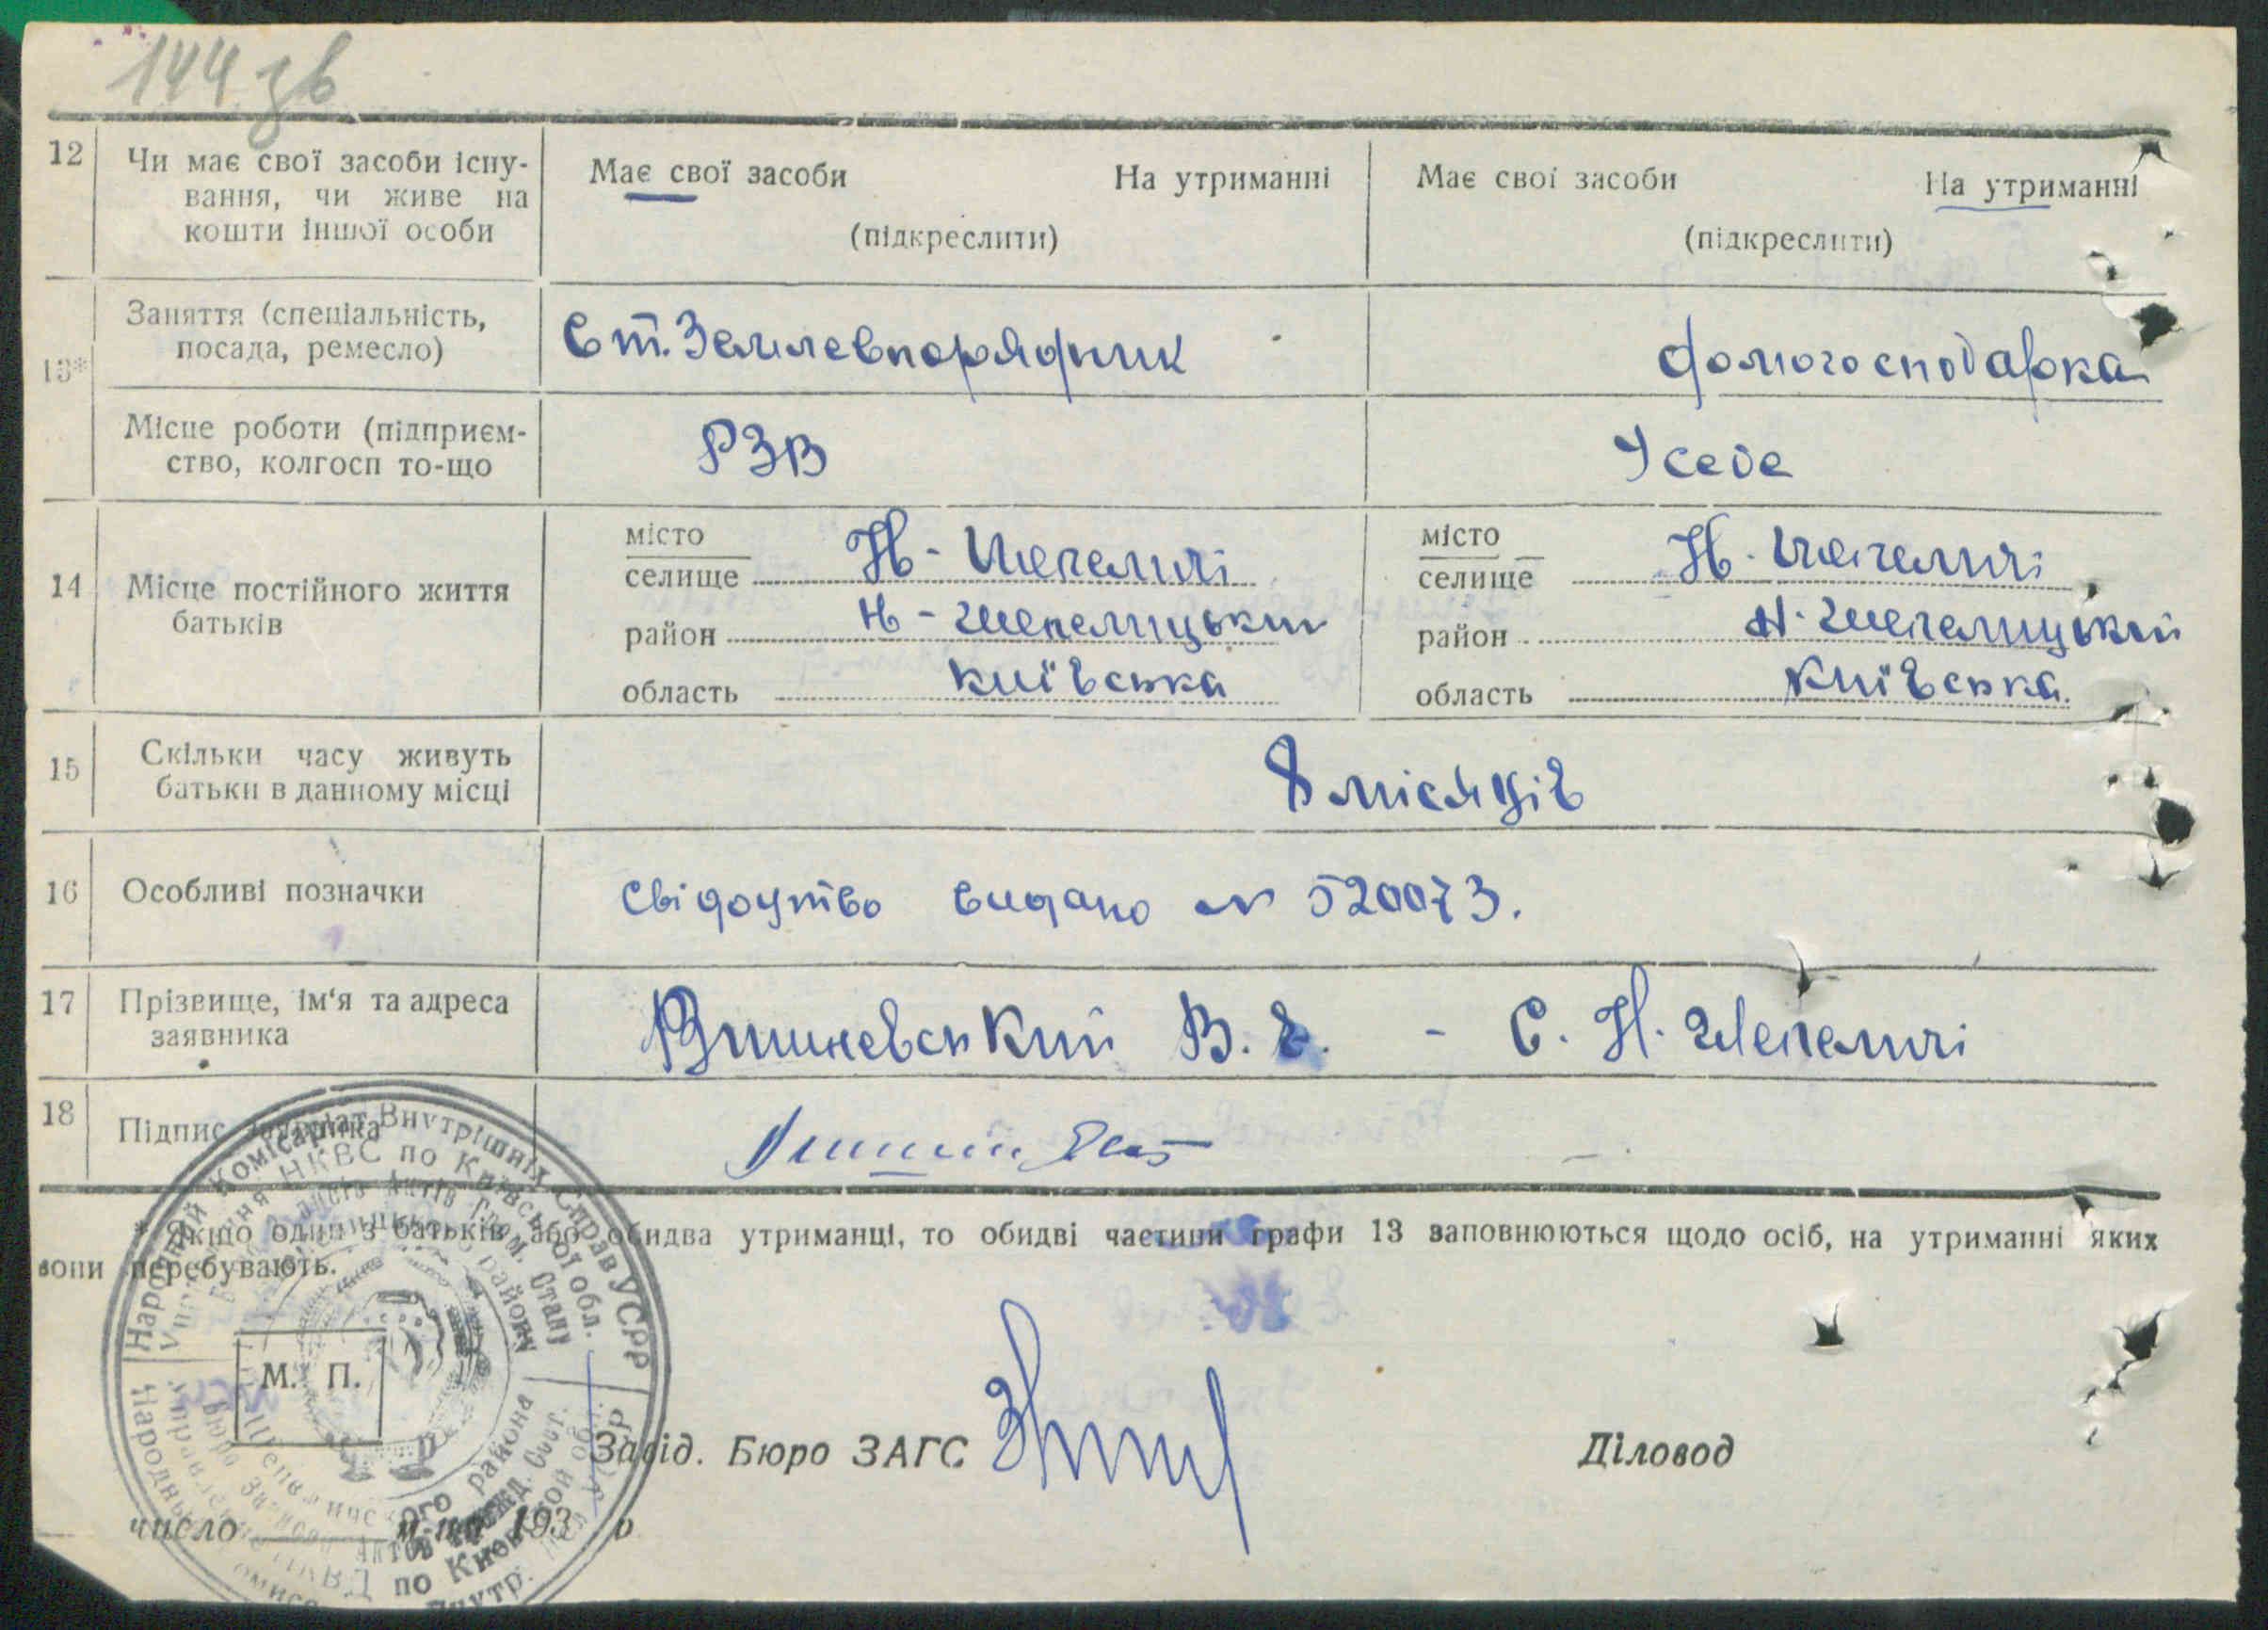 144 зв
12 Чи має свої засоби існу-
вання, чи живе на
кошти іншої особи
Має свої засоби На утриманні
(підкреслити)
Має свої засоби На утриманні
(підкреслити)
13*
Заняття (спеціальність,
посада, ремесло)
Ст. Землевпорядник
домогосподарка
Місце роботи (підприєм-
ство, колгосп то-що
РЗВ
У себе
14 Місце постійного життя
батьків
місто
селище Н-Шепеличі
район Н-Шепелицький
область Київська
місто
селище Н. Шепеличі
район Н. Шепелицький
область Київська.
15 Скільки часу живуть
батьки в данному місці
8 місяців
16 Особливі позначки
свідоцтво видано № 520073.
17 Прізвище, ім‘я та адреса
заявника
Вишневський В. Є. - С. Н. Шепеличі
18 Підпис заявника
* Якщо один з батьків або обидва утриманці, то обидві частини графи 13 заповнюються щодо осіб, на утриманні яких
вони перебувають.
Народний Комісаріат Внутрішніх Справ УСРР
Управління НКВС по Київській обл.
М. П.
Завід. Бюро ЗАГС
Діловод
число м-ця 193 р